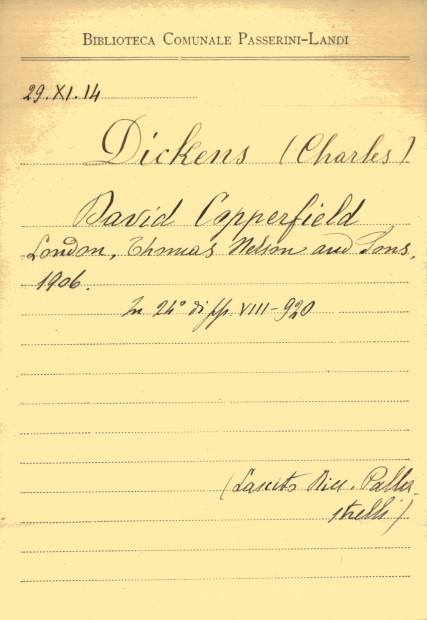 BIBLIOTECA COMUNALE PASSERINI-LANDI
29.XI.14
Dickens (Charles)
David Copperfield
London, Thomas Nelson and Sons,
1906.
In 24° di pp. VIII-920
(Lascito